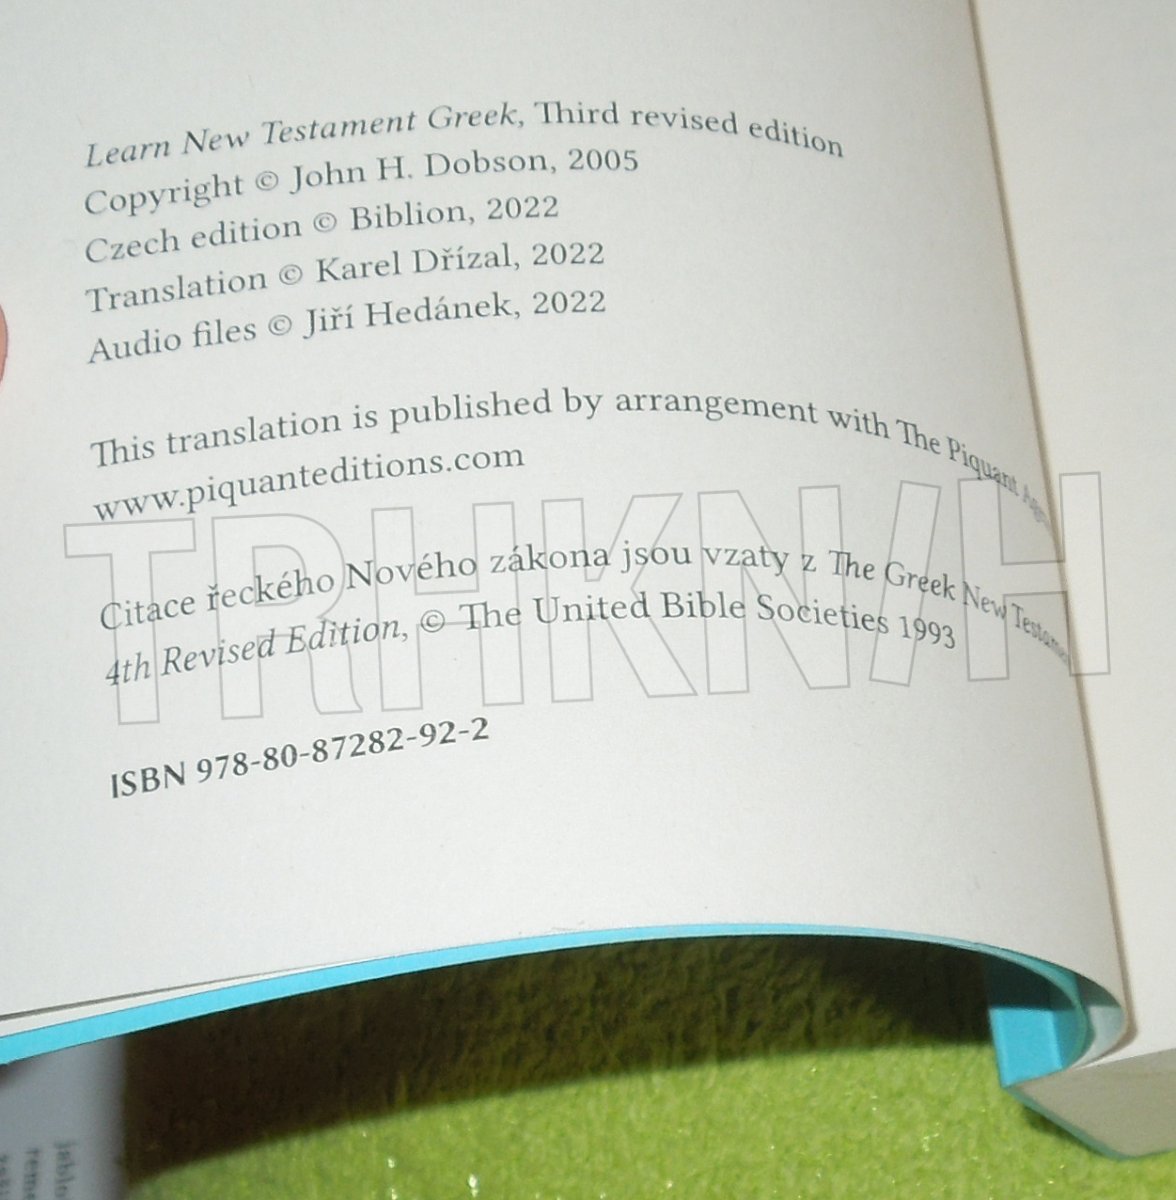 Learn New Testament Greek, Third revised edition
Copyright © John H. Dobson, 2005
Czech edition © Biblion, 2022
Translation © Karel Dřízal, 2022
Audio files © Jiří Hedánek, 2022
This translation is published by arrangement with The Piquant
www.piquanteditions.com
Citace řeckého Nového zákona jsou vzaty z The Greek New
4th Revised Edition, © The United Bible Societies 1993
ISBN 978-80-87282-92-2
TRHKN/H